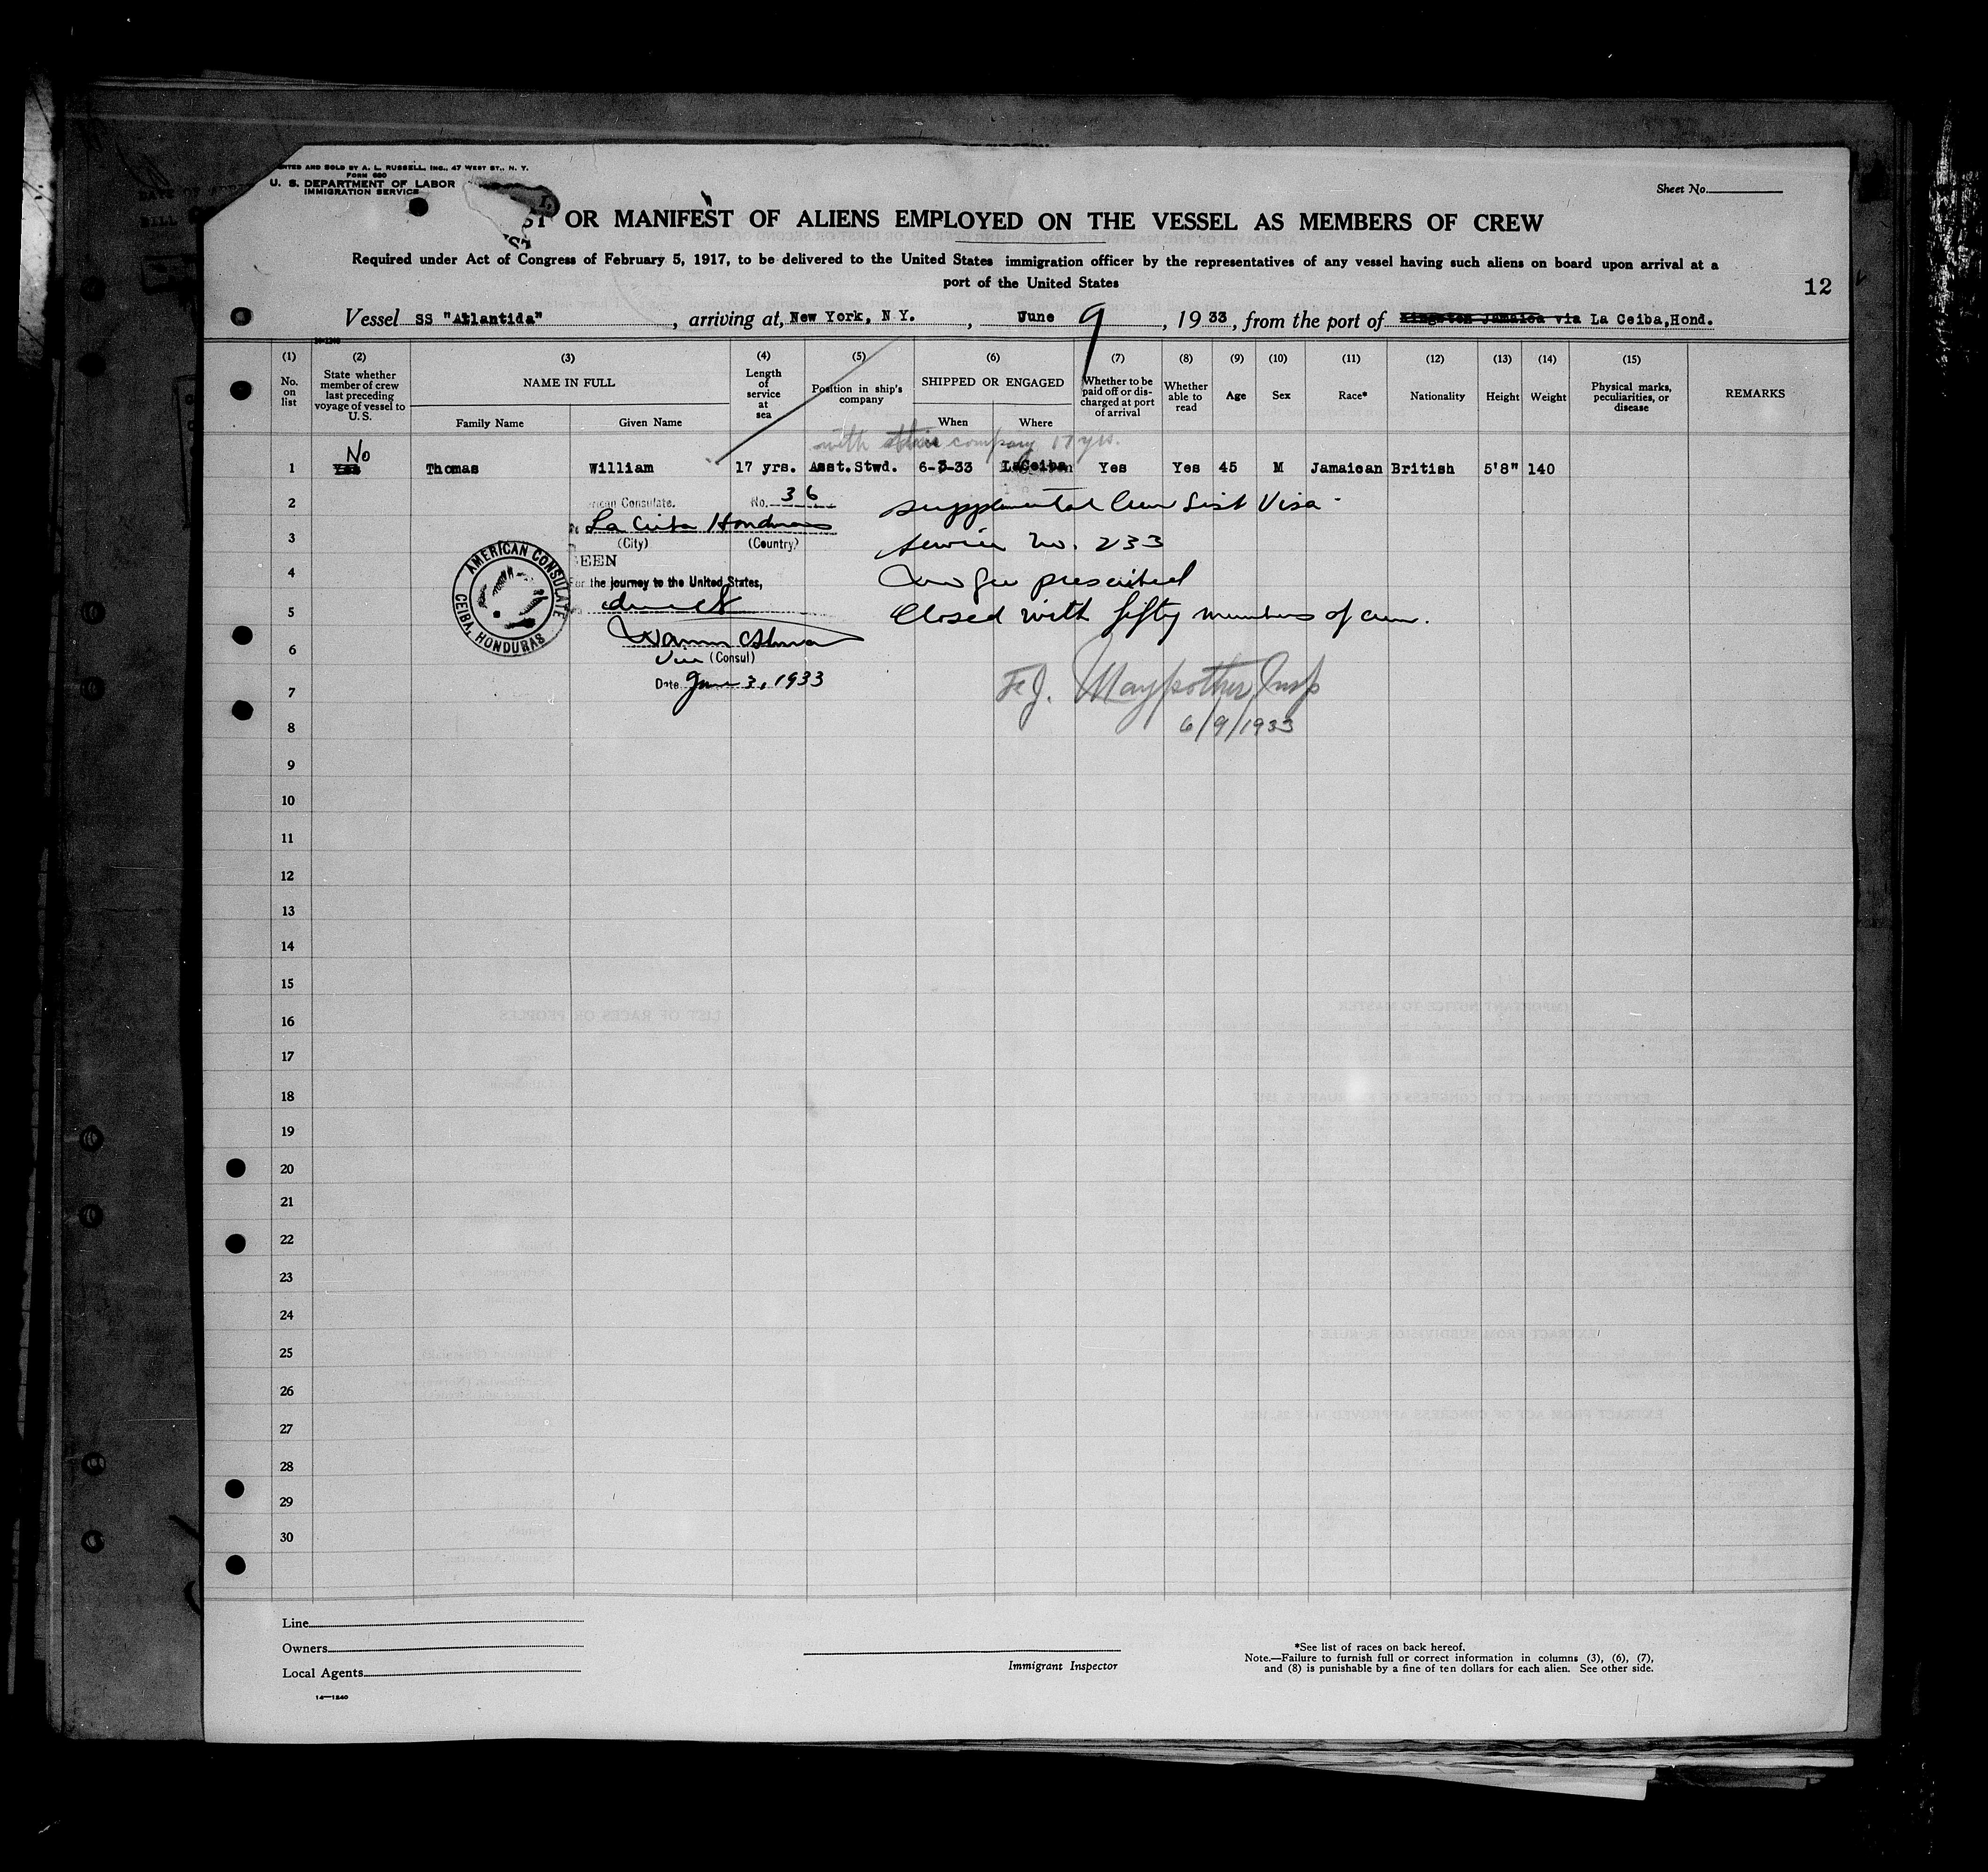 PRINTED AND SOLD BY A. L. RUSSELL, INC., 47 WEST ST., N. Y.
FORM 680
U. S. DEPARTMENT OF LABOR
IMMIGRATION SERVICE
Sheet No.
ST OR MANIFEST OF ALIENS EMPLOYED ON THE VESSEL AS MEMBERS OF CREW
Required under Act of Congress of February 5, 1917, to be delivered to the United States immigration officer by the representatives of any vessel having such aliens on board upon arrival at a
port of the United States
12
Vessel SS "Atlantida", arriving at, New York, N.Y., June 9, 1933, from the port of Kingston Jamaica via La Ceiba,Hond.
(1) No. on list
(2) State whether member of crew last preceding voyage of vessel to U. S.
(3) NAME IN FULL
Family Name Given Name
(4) Length of service at sea
(5) Position in ship's company
(6) SHIPPED OR ENGAGED
When Where
(7) Whether to be paid off or discharged at port of arrival
(8) Whether able to read
(9) Age
(10) Sex
(11) Race*
(12) Nationality
(13) Height
(14) Weight
(15) Physical marks, peculiarities, or disease
REMARKS
with company 17 yrs.
No
1 Yes Thomas William 17 yrs. Asst.Stwd. 6-3-33 LaCeiba Yes Yes 45 M Jamaican British 5'8" 140
2 rican Consulate. No. 36 Supplemental Crew List Visa
La Ceiba Honduras
3 (City) (Country) Service No. 233
EEN
4 For the journey to the United States, No fee prescribed
AMERICAN CONSULATE
CEIBA, HONDURAS
5 Closed with fifty members of crew.
6 Vice (Consul)
7 Date June 3, 1933 F.J. Maypother Insp
8 6/9/1933
9
10
11
12
13
14
15
16
17
18
19
20
21
22
23
24
25
26
27
28
29
30
Line
Owners
Local Agents
14—1240
Immigrant Inspector
*See list of races on back hereof.
Note.—Failure to furnish full or correct information in columns (3), (6), (7),
and (8) is punishable by a fine of ten dollars for each alien. See other side.